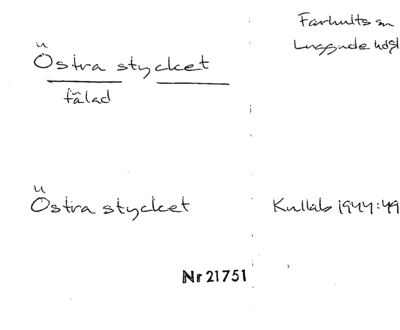 Farhults sn
Luggude hd
Östra stycket
fälad
Östra stycket
Kullab 1944:49
Nr 21751